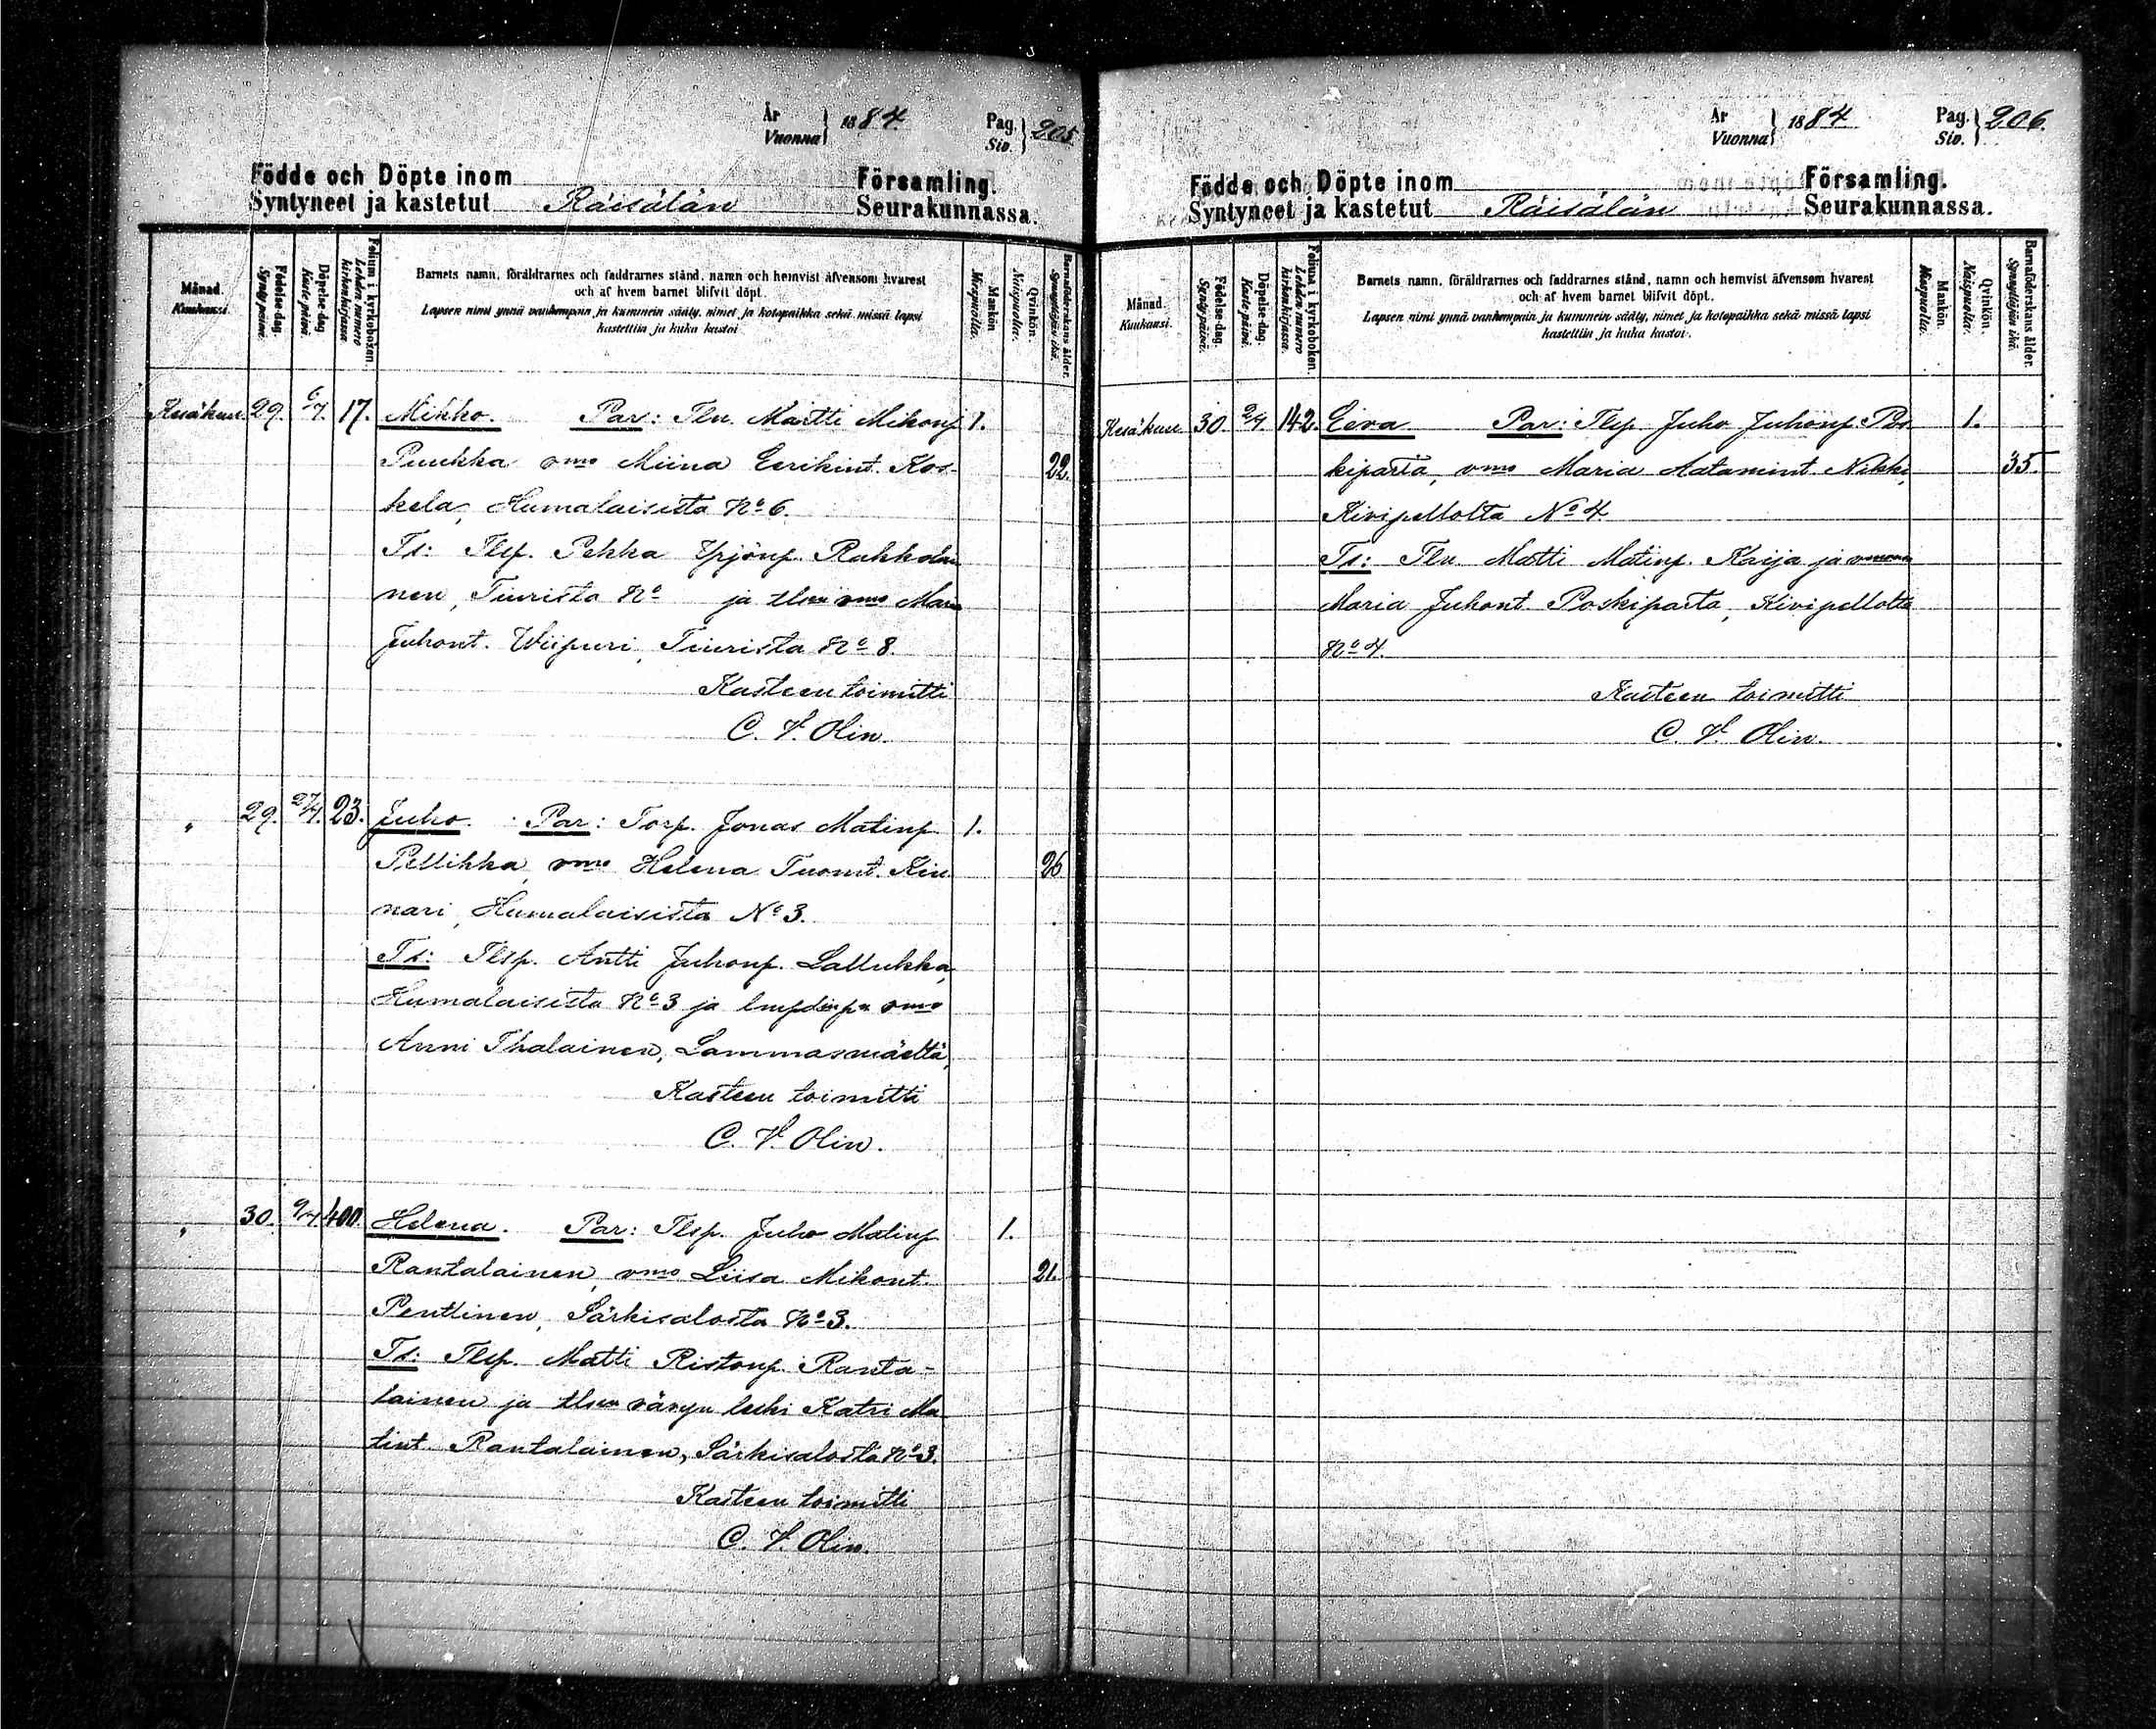 År
Vuonna } 1884.
Pag.
Siv. } 205.
Födde och Döpte inom Församling.
Syntyneet ja kastetut Räisälän Seurakunnassa.
Månad.
Kuukausi.
Födelse-dag.
Syntypäivä.
Döpelse-dag.
Kastepäivä.
Folium i kyrkoboken.
Lehden numero
kirkonkirjassa.
Barnets namn, föräldrarnes och faddrarnes stånd, namn och hemvist äfvensom hvarest
och af hvem barnet blifvit döpt.
Lapsen nimi ynnä vanhempain ja kummein sääty, nimet ja kotopaikka sekä missä lapsi
kastettiin ja kuka kastoi.
Mankön.
Miespuolta.
Qvinkön.
Naispuolta.
Barnaföderskans ålder.
Synnyttäjän ikä.
Kesäkuu. 29. 6/7. 17. Mikko. Par: Tln. Martti Mikonp. 1.
Puukka vmo Miina Eerikint. Kos- 22.
kela, Humalaisista No 6.
Ts: Tlsp. Pekka Yrjönp. Rahkolai
nen, Tiurista No ja tlsen vmo Maria
Juhont. Wiipuri, Tiurista No 8.
Kasteen toimitti
C. V. Olin.
" 29. 27/7. 23. Juho. Par: Torp. Jonas Matinp. 1.
Pellikka, vmo Helena Tuomt. Kin 26
nari, Humalaisista No 3.
Ts: Tlsp. Antti Juhonp. Lallukka,
Humalaisista No 3 ja vmo
Anni Ihalainen, Lammasmäeltä,
Kasteen toimitti
C. V. Olin.
" 30. 9/7 400. Helena. Par: Tlsp. Juho Matinp. 1.
Rantalainen, vmo Liisa Mikont. 21.
Penttinen, Särkisalosta No 3.
Ts: Tlsp. Matti Ristonp. Ranta-
lainen ja tlsen vävyn leski Katri Ma
tint. Rantalainen, Särkisalosta No 3.
Kasteen toimitti
C. V. Olin.
År
Vuonna } 1884.
Pag.
Siv. } 206.
Födde och Döpte inom Församling.
Syntyneet ja kastetut Räisälän Seurakunnassa.
Månad.
Kuukausi.
Födelse-dag.
Syntypäivä.
Döpelse-dag.
Kastepäivä.
Folium i kyrkoboken.
Lehden numero
kirkonkirjassa.
Barnets namn, föräldrarnes och faddrarnes stånd, namn och hemvist äfvensom hvarest
och af hvem barnet blifvit döpt.
Lapsen nimi ynnä vanhempain ja kummein sääty, nimet ja kotopaikka sekä missä lapsi
kastettiin ja kuka kastoi.
Mankön.
Miespuolta.
Qvinkön.
Naispuolta.
Barnaföderskans ålder.
Synnyttäjän ikä.
Kesäkuu. 30. 2/7. 142. Eeva Par: Tlsp. Juho Juhonp. Pos 1.
kiparta, vmo Maria Aatamint. Nikki, 35.
Kivipellolta No 4.
Ts: Tln. Matti Matinp. Kaija ja
Maria Juhont. Poskiparta, Kivipellolta
No 4.
Kasteen toimitti
C. V. Olin.